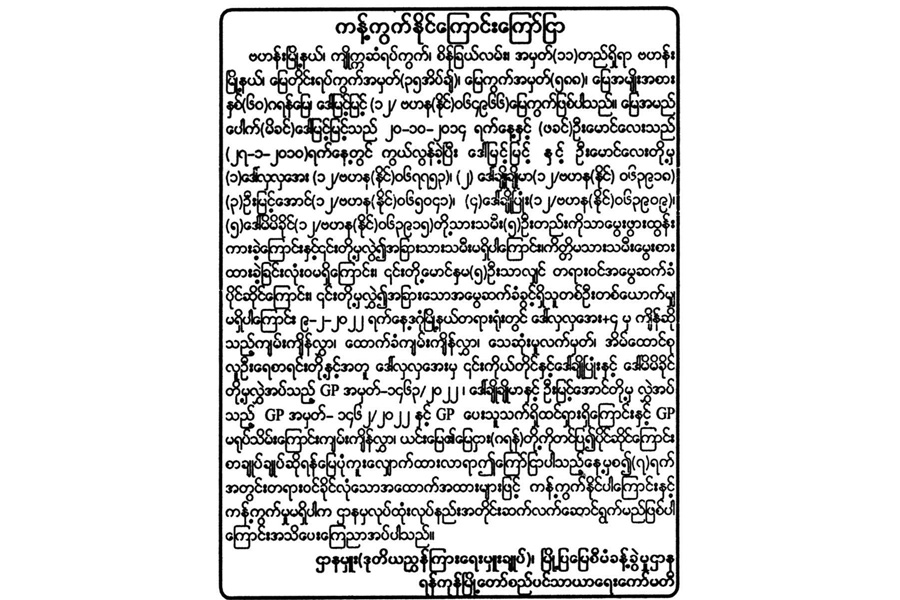 ကန့်ကွက်နိုင်ကြောင်းကြော်ငြာ
ဗဟန်းမြို့နယ်၊ ကျိုက္ကဆံရပ်ကွက်၊ စိန်ခြယ်လမ်း၊ အမှတ်(၁၁)တည်ရှိရာ ဗဟန်း
မြို့နယ်၊ မြေတိုင်းရပ်ကွက်အမှတ်(၃၅အိပ်ချ်)၊ မြေကွက်အမှတ်(၅၈၈)၊ မြေအမျိုးအစား
နှစ်(၆၀)ဂရန်မြေ၊ ဒေါ်မြင့်မြင့် (၁၂/ ဗဟန(နိုင်)၀၆၄၉၆၆)မြေကွက်ဖြစ်ပါသည်။ မြေအမည်
ပေါက်(မိခင်)ဒေါ်မြင့်မြင့်သည် ၂၀–၁၀–၂၀၁၄ ရက်နေ့နှင့် (ဖခင်)ဦးမောင်လေးသည်
(၂၇–၁–၂၀၁၀)ရက်နေ့တွင် ကွယ်လွန်ခဲ့ပြီး ဒေါ်မြင့်မြင့် နှင့် ဦးမောင်လေးတို့မှ
(၁)ဒေါ်လှလှအေး (၁၂/ဗဟန(နိုင်)၀၆၇၇၅၃)၊ (၂) ဒေါ်ချိုချိုမာ(၁၂/ဗဟန(နိုင်) ၀၆၃၉၁၈)
(၃)ဦးမြင့်အောင်(၁၂/ဗဟန(နိုင်)၀၆၅၀၄၁)၊ (၄)ဒေါ်ချိုပြုံး(၁၂/ဗဟန(နိုင်)၀၆၃၉၀၉)၊
(၅)ဒေါ်မိမိခိုင်(၁၂/ဗဟန(နိုင်)၀၆၃၉၁၅)တို့သားသမီး(၅)ဦးတည်းကိုသာမွေးဖွားထွန်း
ကားခဲ့ကြောင်းနှင့်၎င်းတို့မှလွဲ၍အခြားသားသမီးမရှိပါကြောင်း၊ကိတ္တိမသားသမီးမွေးစား
ထားခဲ့ခြင်းလုံးဝမရှိကြောင်း၊ ၎င်းတို့မောင်နှမ(၅)ဦးသာလျှင် တရားဝင်အမွေဆက်ခံ
ပိုင်ဆိုင်ကြောင်း၊ ၎င်းတို့မှလွဲ၍အခြားသောအမွေဆက်ခံခွင့်ရှိသူတစ်ဦးတစ်ယောက်မျှ
မရှိပါကြောင်း ၉–၂–၂၀၂၂ ရက်နေ့ဒဂုံမြို့နယ်တရားရုံးတွင် ဒေါ်လှလှအေး+၄ မှ ကျိန်ဆို
သည့်ကျမ်းကျိန်လွှာ၊ ထောက်ခံကျမ်းကျိန်လွှာ၊ သေဆုံးမှုလက်မှတ်၊ အိမ်ထောင်စု
လူဦးရေစာရင်းတို့နှင့်အတူ ဒေါ်လှလှအေးမှ ၎င်းကိုယ်တိုင်နှင့်ဒေါ်ချိုပြုံးနှင့် ဒေါ်မိမိခိုင်
တို့မှလွှဲအပ်သည့် GP အမှတ်–၁၄၆၃/၂၀၂၂ ၊ ဒေါ်ချိုချိုမာနှင့် ဦးမြင့်အောင်တို့မှ လွှဲအပ်
သည့် GP အမှတ်– ၁၄၆၂/၂၀၂၂ နှင့် GP ပေးသူသက်ရှိထင်ရှားရှိကြောင်းနှင့် GP
မရုပ်သိမ်းကြောင်းကျမ်းကျိန်လွှာ၊ ယင်းမြေ၏မြေငှား(ဂရန်)တို့ကိုတင်ပြ၍ပိုင်ဆိုင်ကြောင်း
စာချုပ်ချုပ်ဆိုရန်မြေပုံကူးလျှောက်ထားလာရာဤကြော်ငြာပါသည့်နေ့မှစ၍(၇)ရက်
အတွင်းတရားဝင်ခိုင်လုံသောအထောက်အထားများဖြင့် ကန့်ကွက်နိုင်ပါကြောင်းနှင့်
ကန့်ကွက်မှုမရှိပါက ဌာနမှလုပ်ထုံးလုပ်နည်းအတိုင်းဆက်လက်ဆောင်ရွက်မည်ဖြစ်ပါ
ကြောင်းအသိပေးကြေညာအပ်ပါသည်။
ဌာနမှူး(ဒုတိယညွှန်ကြားရေးမှူးချုပ်)၊ မြို့ပြမြေစီမံခန့်ခွဲမှုဌာန
ရန်ကုန်မြို့တော်စည်ပင်သာယာရေးကော်မတီ